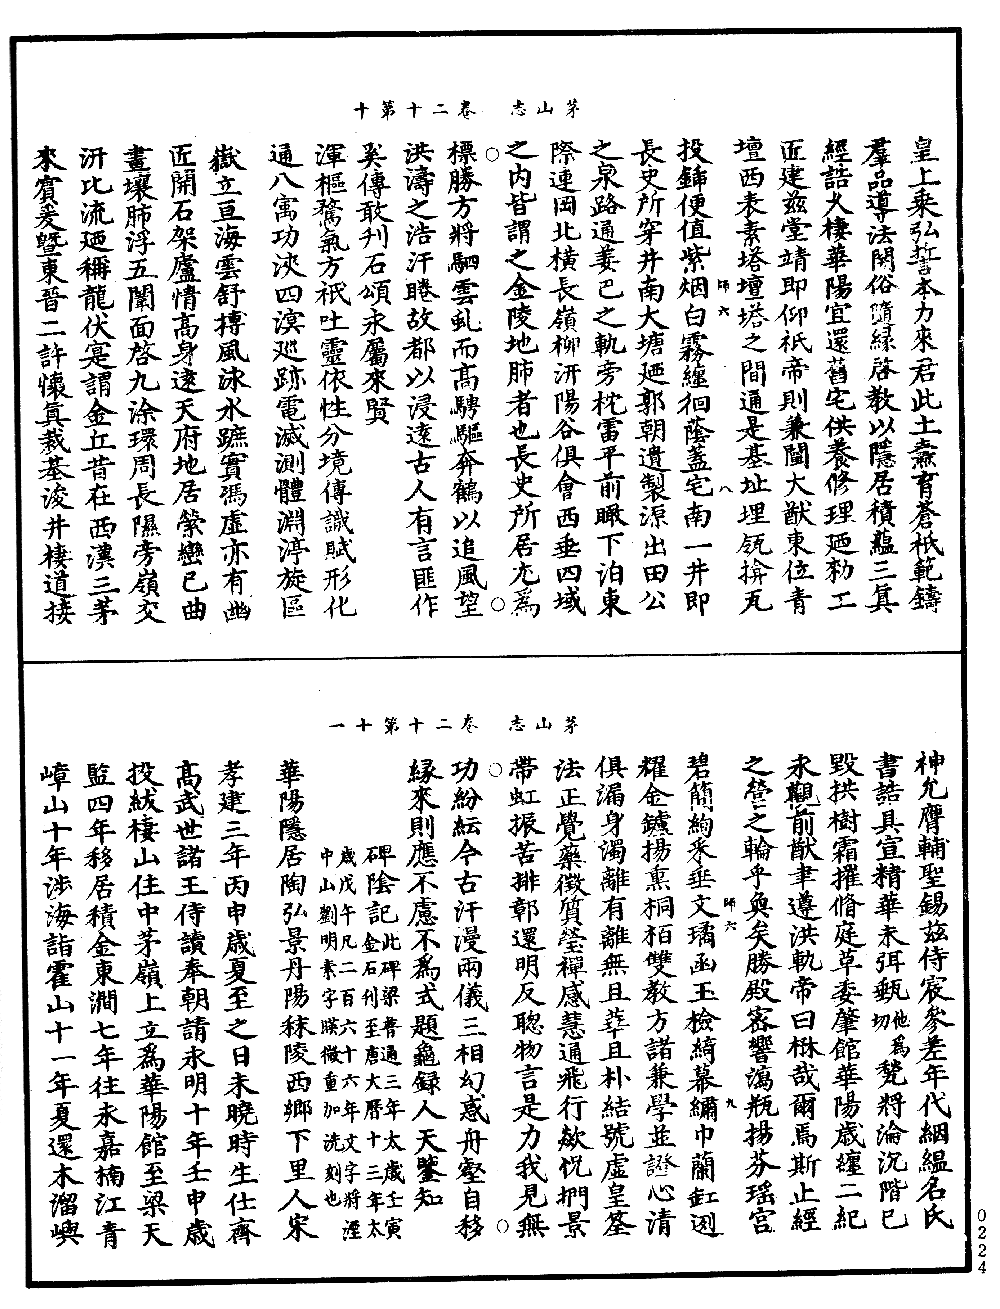 茅山志　卷二十第十
皇上乘弘誓本力來君此土燾育蒼祇範鑄
羣品導法開俗隨緣啓教以隱居積蘊三真
經誥久棲華陽宜還舊宅供養修理廼勑工
匠建茲堂靖即仰祇帝則兼闡大猷東位青
壇西表素塔壇塔之間通是基址埋瓴揜瓦
師六　八
投鍤便值紫烟白霧纏徊蔭蓋宅南一井即
長史所穿井南大塘廼郭朝遺製源出田公
之泉路通姜巴之軌旁枕雷平前瞰下泊東
際連岡北橫長嶺柳汧陽谷俱會西垂四域
之內皆謂之金陵地肺者也長史所居尤爲
標勝方將駟雲虬而高騁驅奔鶴以追風望
洪濤之浩汗睠故都以浸遠古人有言匪作
奚傳敢刋石頌永屬來賢
渾樞騖氣方祇吐靈依性分境傳識賦形化
通八寓功浹四溟巡跡電滅測體淵渟旋區
嶽立亘海雲舒摶風泳水蹠實馮虛亦有幽
匠開石架廬情高身遠天府地居縈巒巳曲
畫壤肺浮五闈面啓九涂環周長隰旁嶺交
汧比流廼稱龍伏寔謂金丘昔在西漢三茅
來賓爰暨東晉二許懷真裁基浚井棲道接
茅山志　卷二十第十一
神允膺輔聖錫茲侍宸參差年代絪緼名氏
書誥具宣精華未弭甄他爲切甃將淪沉階已
毀拱樹霜摧脩庭草委肇館華陽歲纏二紀
永觀前猷聿遵洪軌帝曰楙哉爾焉斯止經
之營之輪乎奐矣勝殿密響瀉瓶揚芬瑤宮
師六　九
碧簡絢釆垂文璚函玉檢綺幕繡巾蘭缸迾
耀金鑪揚熏桐栢雙教方諸兼學並證心清
俱漏身濁離有離無且華且朴結號虛皇筌
法正覺藥徵質瑩禪感慧通飛行欻恍捫景
帶虹振苦排鄣還明反聦物言是力我見無
功紛紜今古汗漫兩儀三相幻惑舟壑自移
緣來則應不慮不爲式題龜録人天鑒知
碑陰記此碑梁普通三年太歲壬寅
金石刋至唐大曆十三年太
歲戊午凡二百六十六年文字將湮
中山劉明素字牒微重加洗刻也
華陽隱居陶弘景丹陽秣陵西鄉下里人宋
孝建三年丙申歲夏至之日未曉時生仕齊
高武世諸王侍讀奉朝請永明十年壬申歲
投紱棲山住中茅嶺上立爲華陽館至梁天
監四年移居積金東澗七年往永嘉楠江青
嶂山十年涉海詣霍山十一年夏還木溜嶼
0224